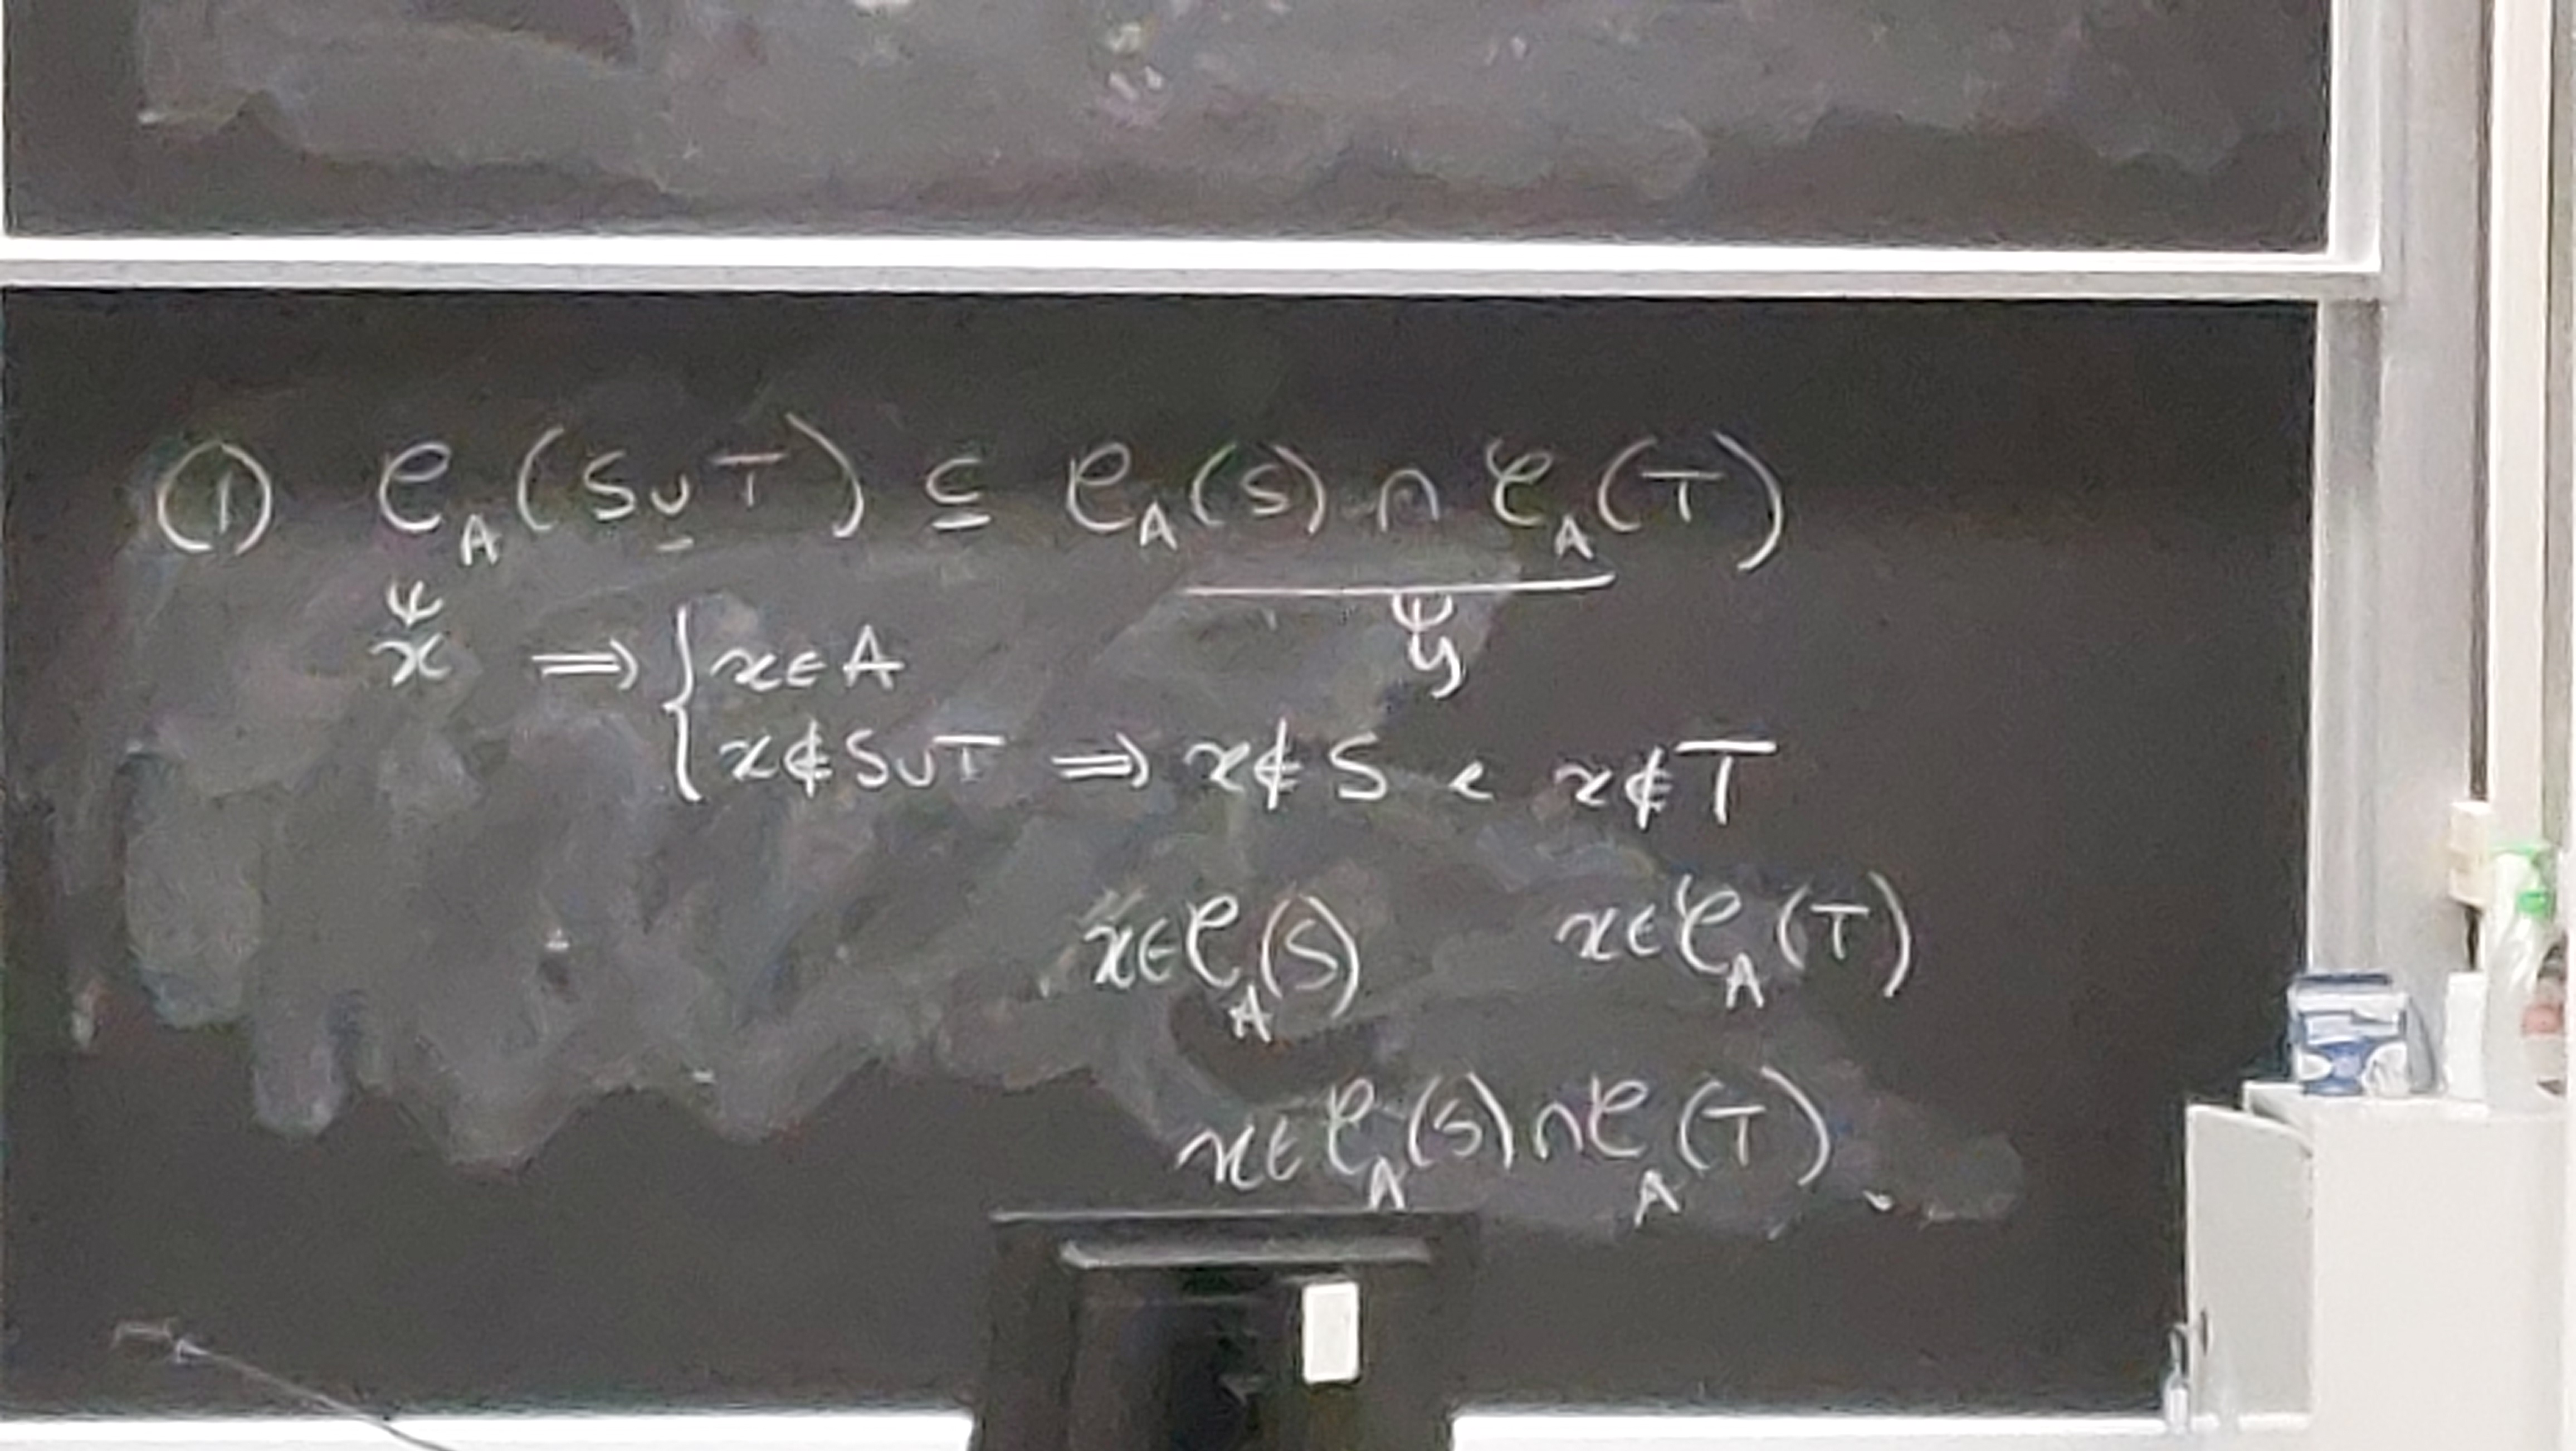 (1) 𝒞_A(S∪T) ⊆ 𝒞_A(S) ∩ 𝒞_A(T)
x ⇒ { x∈A y
x∉S∪T ⇒ x∉S e x∉T
x∈𝒞_A(S) x∈𝒞_A(T)
x∈𝒞_A(S)∩𝒞_A(T).